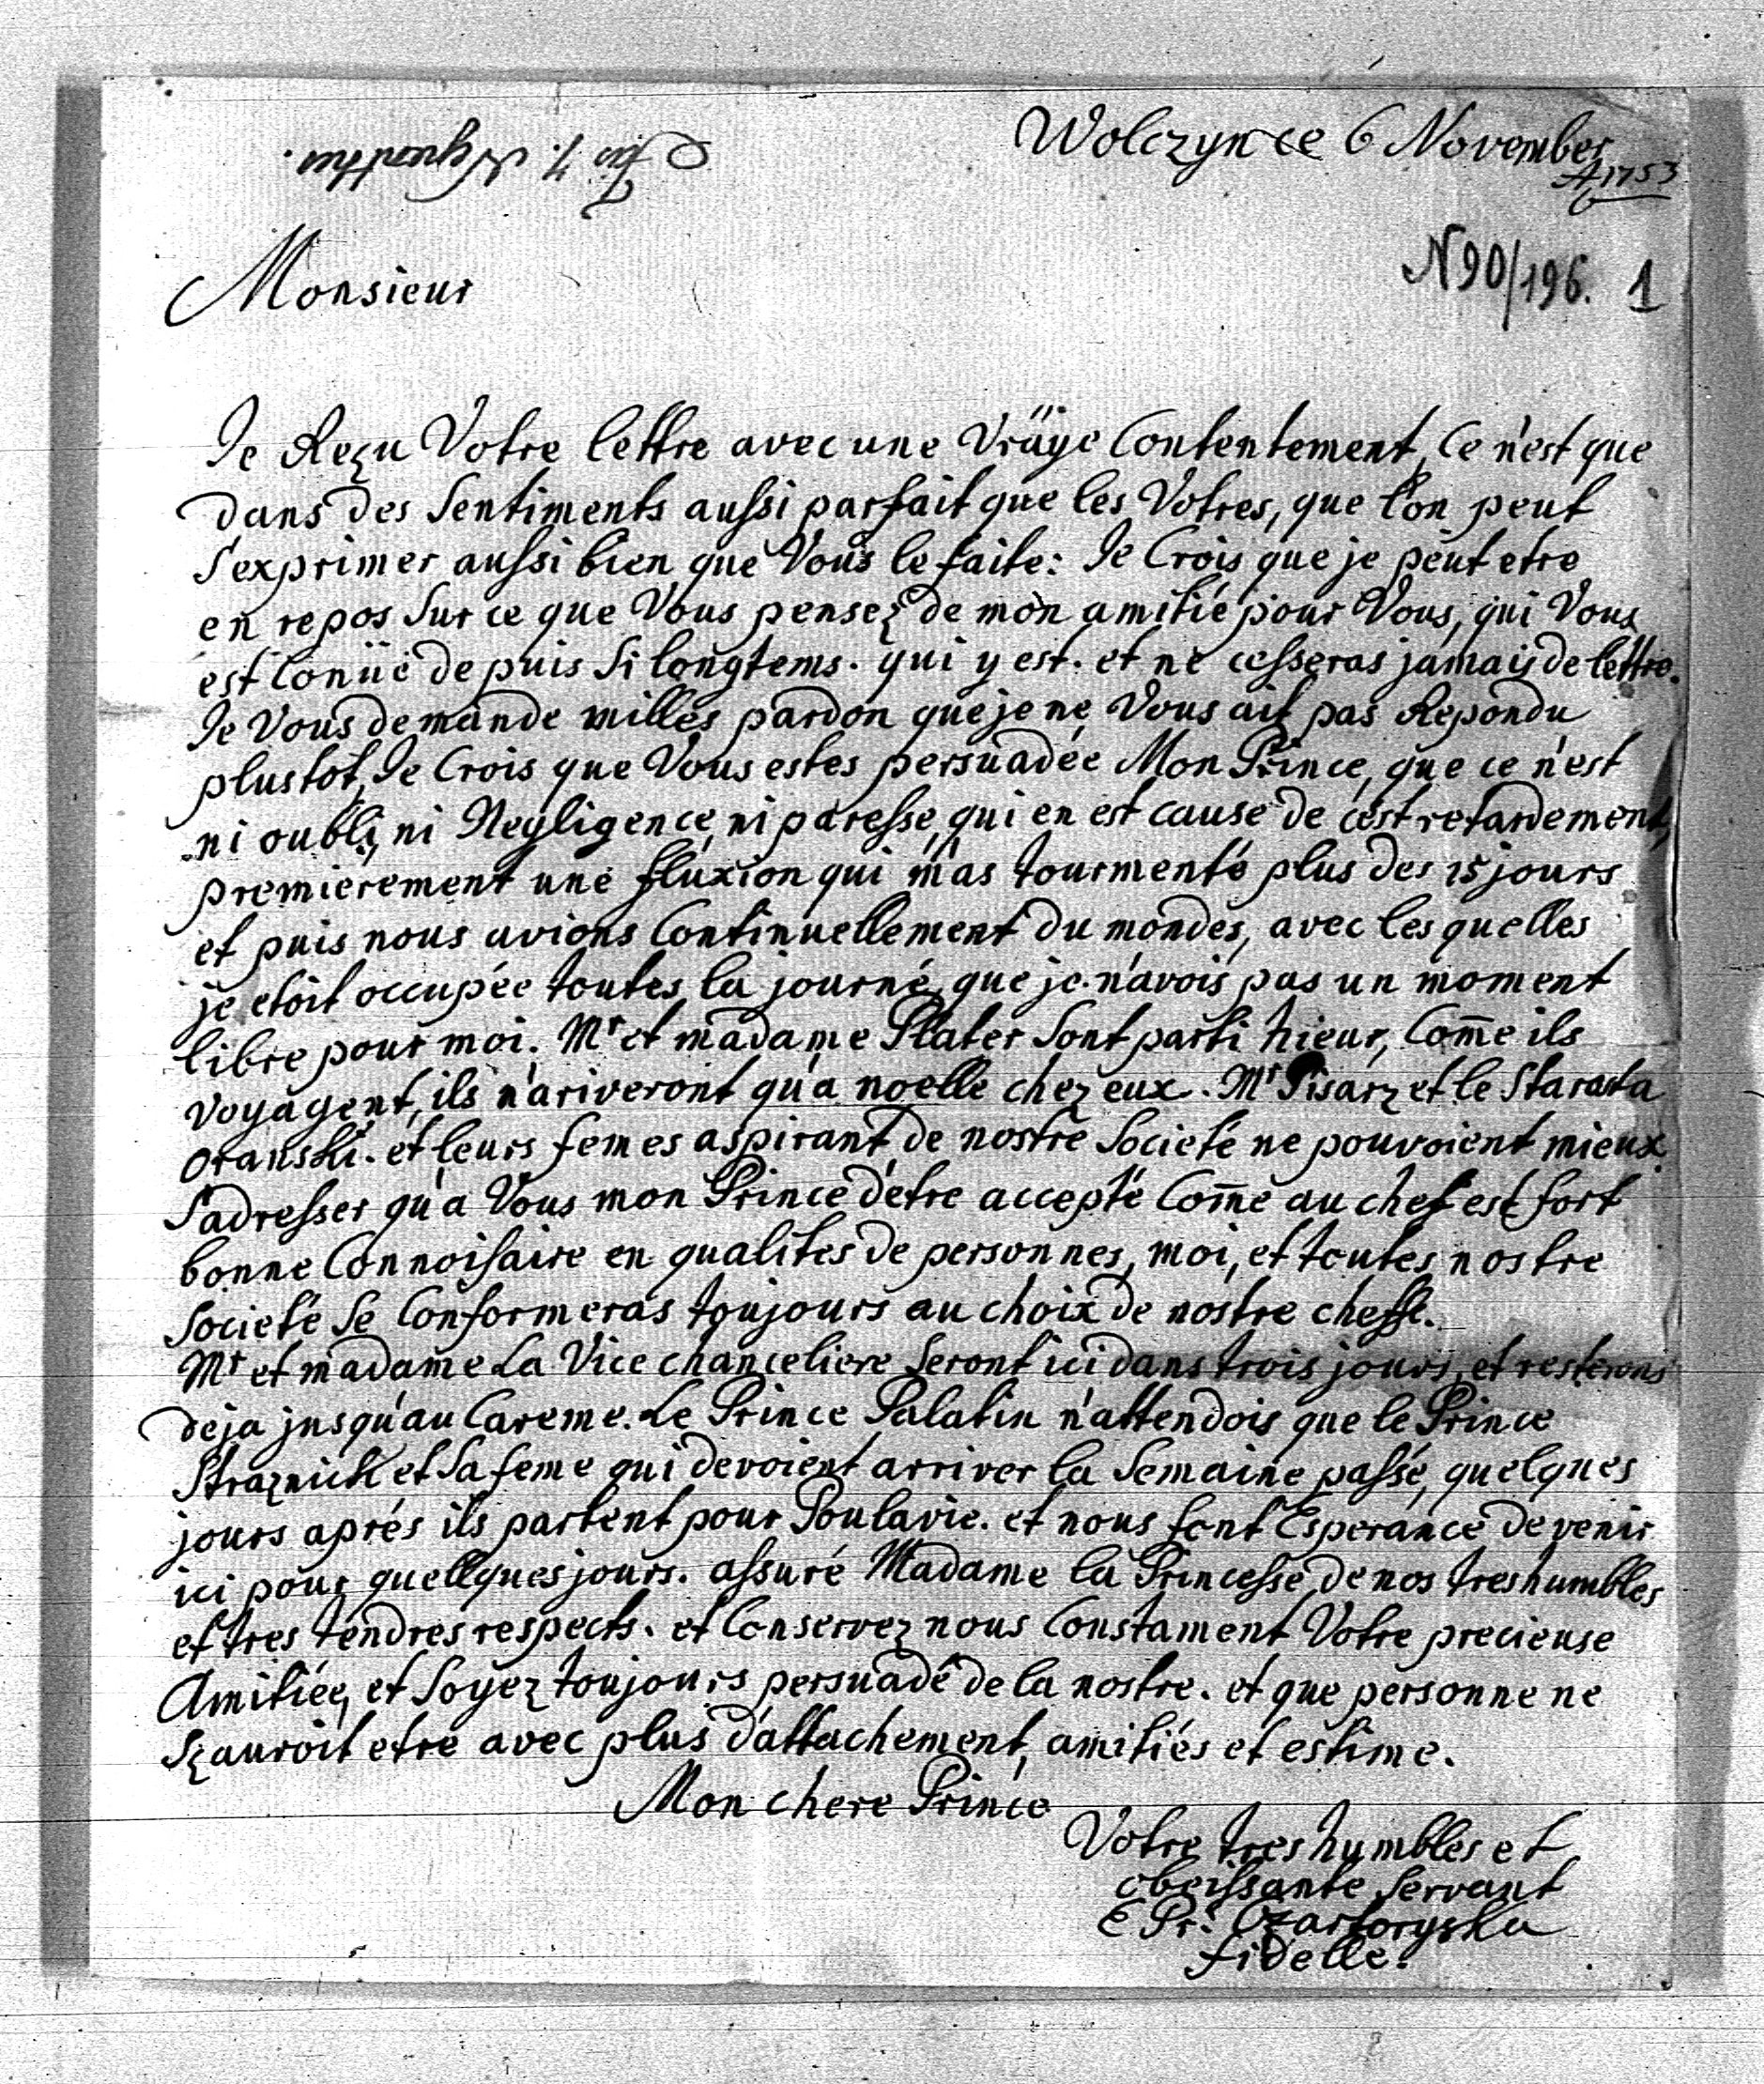 Wolczyn ce 6 November
A 1753
N 90/196. 1
Monsieur
Je Reçu Votre lettre avec une Vräye Contentement, Ce n'est que
dans des Sentiments aussi parfait que les Votres, que l'on peut
S'exprimer aussi bien que Vous le faite: Je Crois que je peut etre
en repos Sur ce que Vous pensez de mon amitié pour Vous, qui Vous
est Conüe de puis Si longtems. qui y est. et ne cesseras jamais de lettre.
Je Vous demande milles pardon que je ne Vous ait pas Repondu
plustot, Je Crois que Vous estes persuadée Mon Prince, que ce n'est
ni oubli, ni Negligence, ni paresse, qui en est cause de cest retardement,
premierement une fluxion qui m'as tourmenté plus des 15 jours
et puis nous avions Continuellement du mondes, avec les quelles
je etoit occupée toutes la journé, que je n'avois pas un moment
libre pour moi. Mr et madame Plater Sont parti hieur, Com̅e ils
voyagent, ils n'ariveront qu'a noelle chez eux. Mr Pisarz et le Starosta
Oranski. et leurs femes aspirant de nostre Societé ne pouvoient mieux
S'adresser qu'a Vous mon Prince d'etre accepté Com̅e au chef est fort
bonne Connoisaire en qualites de personnes, moi, et toutes nostre
Societé Se Conformeras toujours au choix de nostre cheffe.
Mr et madame La Vice chanceliere Seront ici dans trois jours, et resterons
deja jusqu'au Careme. Le Prince Palatin n'attendois que le Prince
Straznick et Sa feme qui devoient arriver la Semaine passé, quelques
jours aprés ils partent pour Poulavie. et nous font Esperance de venir
ici pour quellques jours. assuré Madame la Princesse, de nos tres humbles
et tres tendres respects. et Conservez nous Constament Votre precieuse
Amitiée, et Soyez toujours persuadé de la nostre. et que personne ne
Sçauroit etre avec plus d'attachement, amitiés et estime.
Mon chere Prince
Votre tres humbles et
obeissante Servant
E Pr: Czartoryska
fidelle.